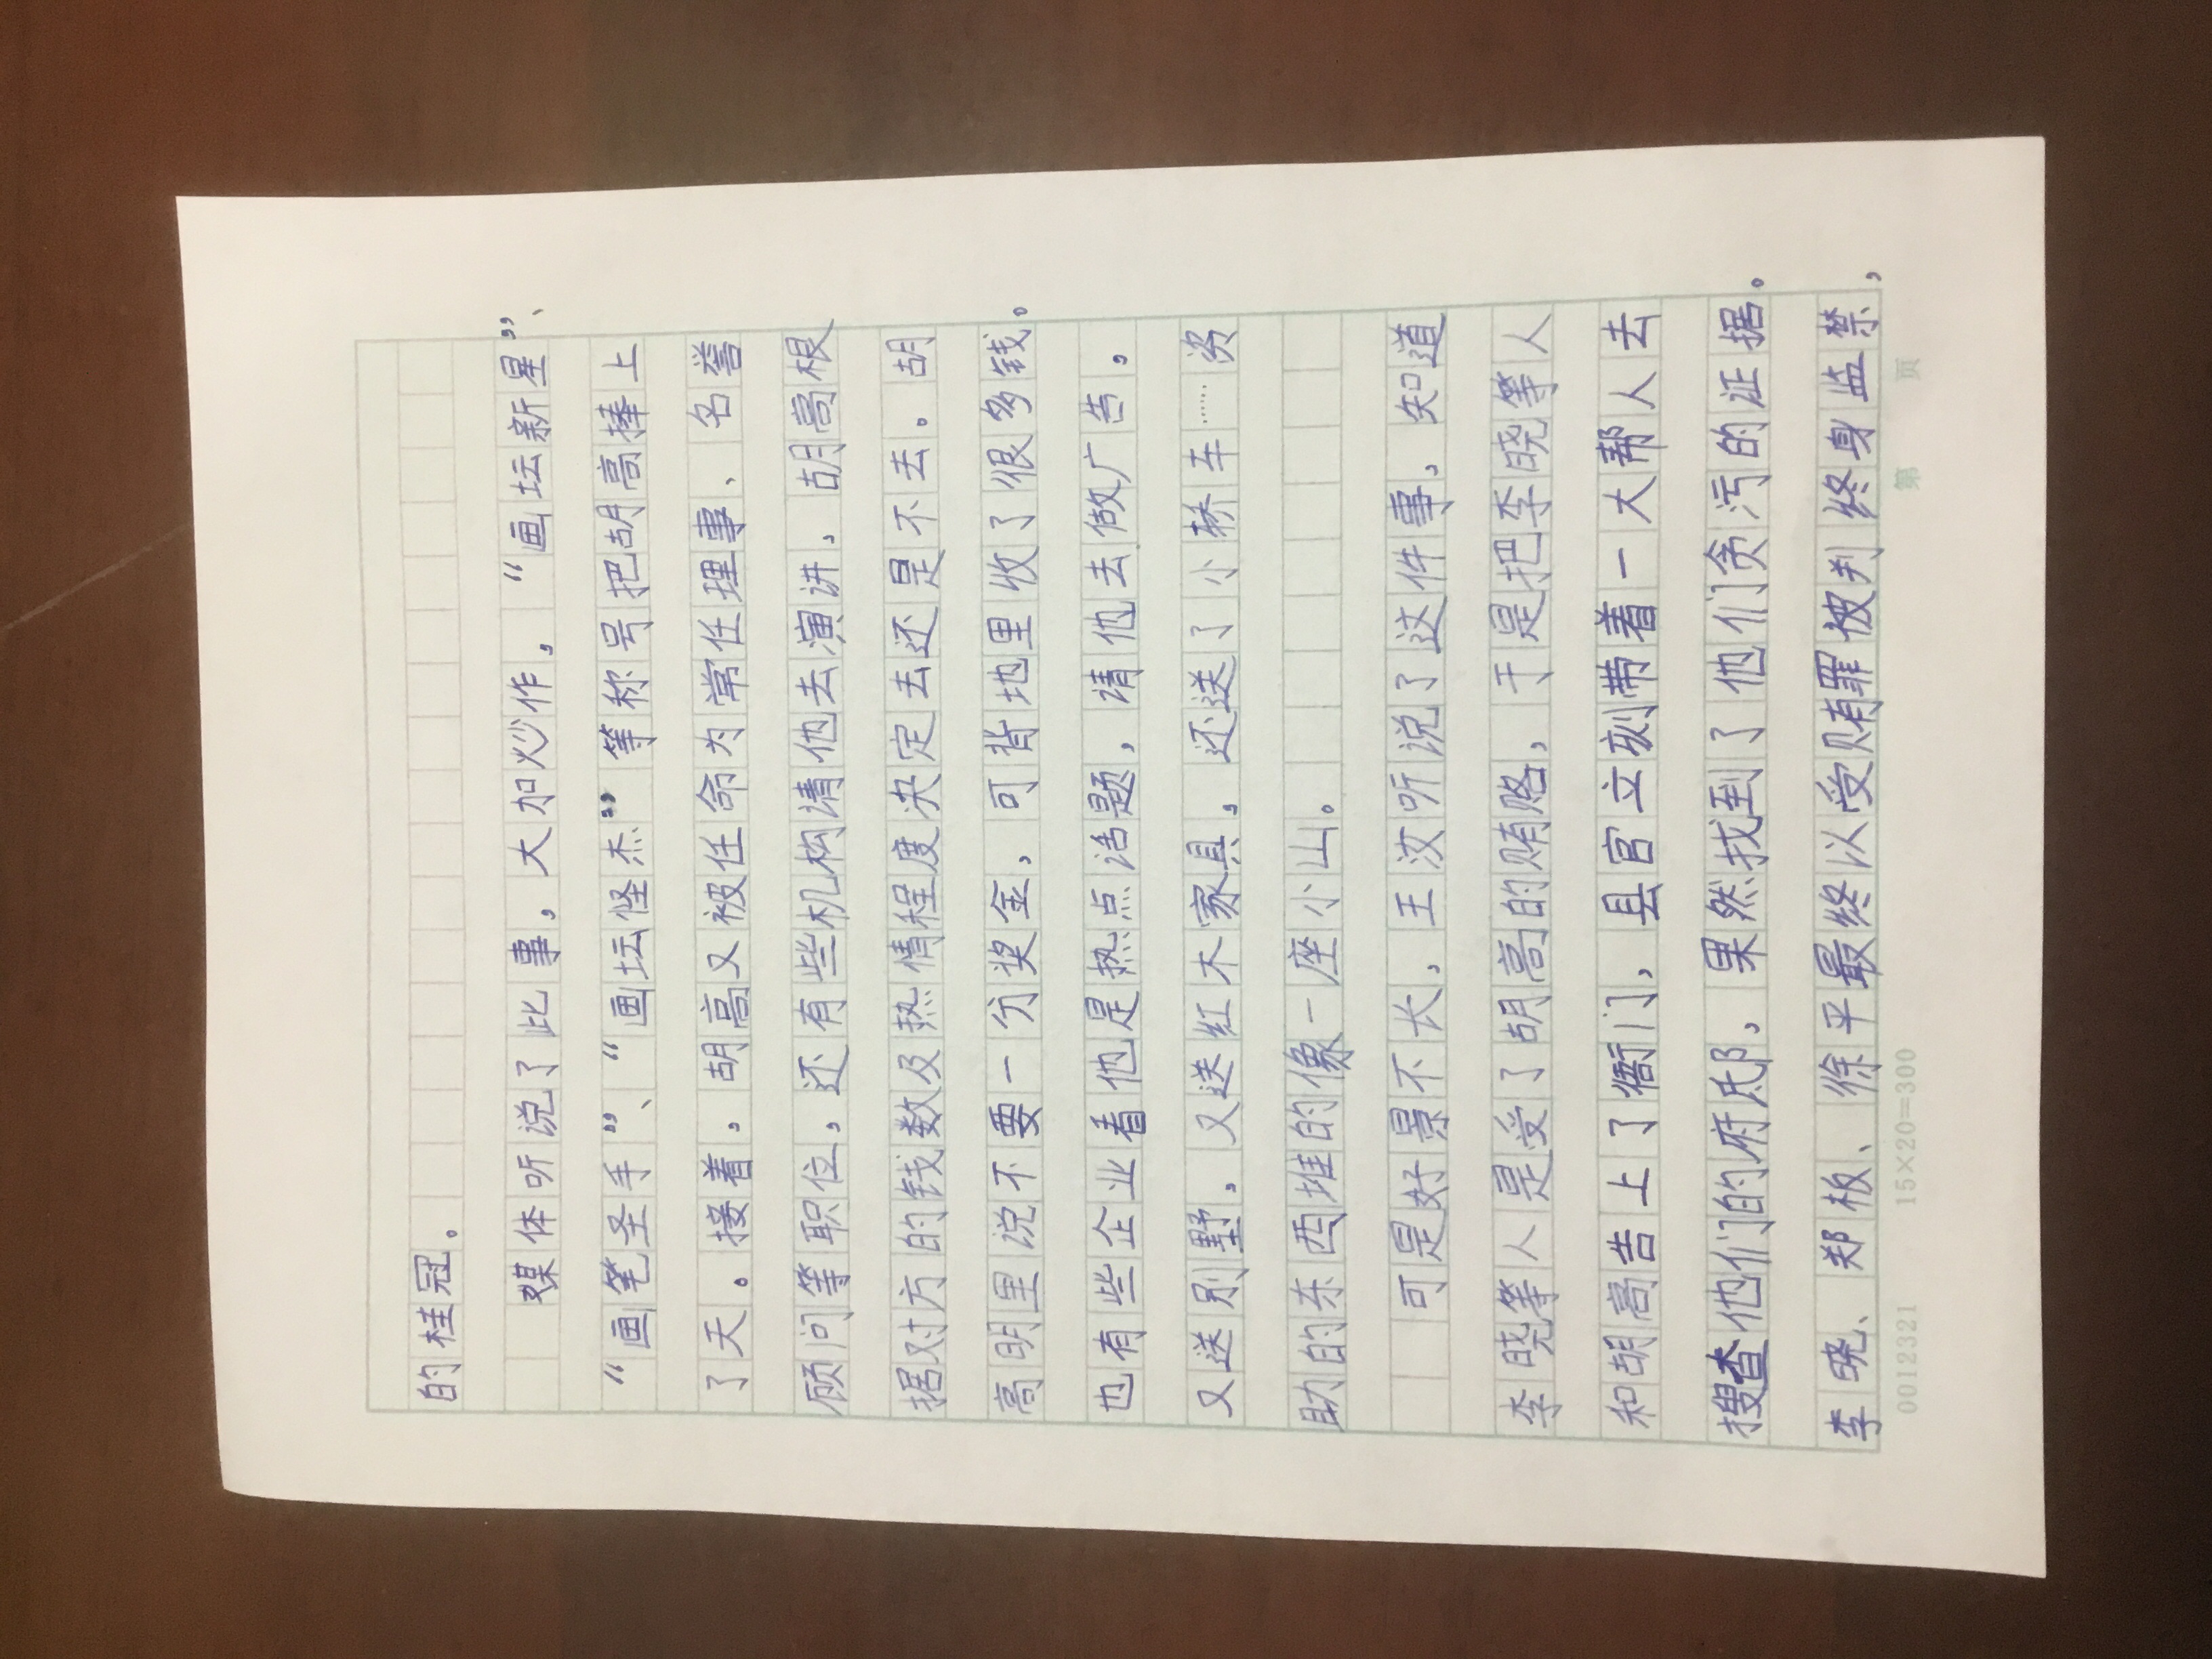 的桂冠。
媒体听说了此事，大加炒作，“画坛新星”、
“画笔圣手”、“画坛怪杰”等称号把胡高捧上
了天。接着，胡高又被任命为常任理事、名誉
顾问等职位，还有些机构请他去演讲，胡高根
据对方的钱数及热情程度决定去还是不去。胡
高明里说不要一分奖金，可背地里收了很多钱。
也有些企业看他是热点话题，请他去做广告，
又送别墅，又送红木家具，还送了小轿车……资
助的东西堆的像一座小山。
可是好景不长，王汶听说了这件事，知道
李晓等人是受了胡高的贿赂，于是把李晓等人
和胡高告上了衙门，县官立刻带着一大帮人去
搜查他们的府邸，果然找到了他们贪污的证据。
李晓、郑板、徐平最终以受贿罪被判终身监禁，
0012321 15×20=300 第 页